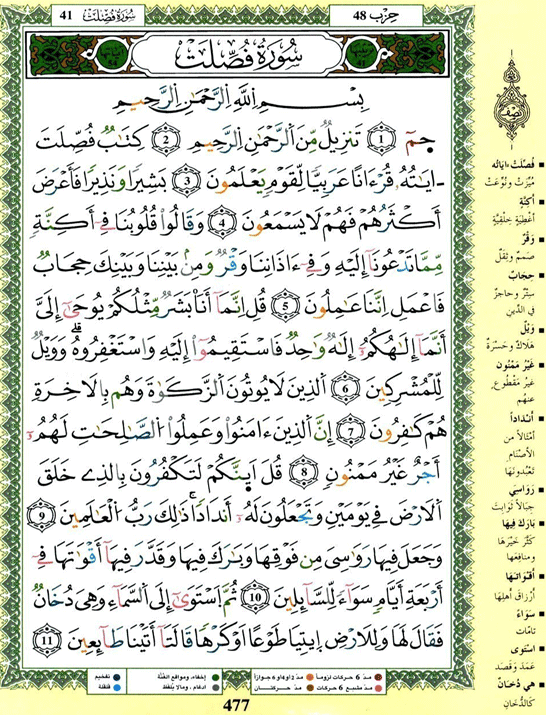 سُورَةُ فُصِّلَتْ 41
حِزْب 48
سُورَةُ فُصِّلَتْ
بِسْمِ اِللَّهِ اِلرَّحْمَٰنِ اِلرَّحِيمِ
حمٓ 1 تَنزِيلٌ مِّنَ اَلرَّحْمَٰنِ اِلرَّحِيمِ 2 كِتَٰبٌ فُصِّلَتَ
ـ ايَٰتُهُۥ قُرْءَاناً عَرَبِيّاً لِّقَوْمٍ يَعْلَمُونَ 3 بَشِيراً وَنَذِيراً فَأَعْرَضَ
أَكْثَرُهُمْ فَهُمْ لَا يَسْمَعُونَ 4 وَقَالُواْ قُلُوبُنَا فِےٓ أَكِنَّةٍ
مِّمَّا تَدْعُونَآ إِلَيْهِ وَفِےٓ ءَاذَانِنَا وَقْرٌ وَمِنۢ بَيْنِنَا وَبَيْنِكَ حِجَابٌ
فَاعْمَلِ اِنَّنَا عَٰمِلُونَ 5 قُلِ اِنَّمَآ أَنَا بَشَرٌ مِّثْلُكُمْ يُوحَىٰٓ إِلَىَّ
أَنَّمَآ إِلَٰهُكُمُۥٓ إِلَٰهٌ وَٰحِدٌ فَاسْتَقِيمُوٓاْ إِلَيْهِ وَاسْتَغْفِرُوهُ وَوَيْلٌ
لِّلْمُشْرِكِينَ 6 اَلذِينَ لَا يُوتُونَ اَلزَّكَوٰةَ وَهُم بِالَاخِرَةِ
هُمْ كَٰفِرُونَ 7 إِنَّ اَلذِينَ ءَامَنُواْ وَعَمِلُواْ اُلصَّٰلِحَٰتِ لَهُمُۥٓ
أَجْرٌ غَيْرُ مَمْنُونٍ 8 قُلَ اَئنَّكُمْ لَتَكْفُرُونَ بِالذِے خَلَقَ
اَلَارْضَ فِے يَوْمَيْنِ وَتَجْعَلُونَ لَهُۥٓ أَندَاداً ذَٰلِكَ رَبُّ اُلْعَٰلَمِينَ 9
وَجَعَلَ فِيهَا رَوَٰسِىَ مِن فَوْقِهَا وَبَٰرَكَ فِيهَا وَقَدَّرَ فِيهَآ أَقْوَٰتَهَا فِےٓ
أَرْبَعَةِ أَيَّامٍ سَوَآءً لِّلسَّآئِلِينَ 10 ثُمَّ اَسْتَوَىٰٓ إِلَى اَلسَّمَآءِ وَهِىَ دُخَانٌ
فَقَالَ لَهَا وَلِلَارْضِ اِيتِيَا طَوْعاً اَوْ كَرْهاً قَالَتَآ أَتَيْنَا طَآئِعِينَ 11
نِصْف
فُصِّلَتْ ءَايَاتُه
مُيِّزَتْ ونُوِّعَتْ
أَكِنَّةٍ
أَغْطِيَةٍ خِلْقِيَّةٍ
وَقْرٌ
صَمَمٌ وثِقَلٌ
حِجَابٌ
سِتْرٌ وحاجِزٌ
في الدِّينِ
وَيْلٌ
هَلَاكٌ وحَسْرَةٌ
غَيْرُ مَمْنُونٍ
غيرُ مَقْطُوعٍ
عنهُم
أَنْدَاداً
أمثالاً من
الأصْنَامِ
تَعْبُدُونَهَا
رَوَاسِيَ
جِبَالاً ثَوَابِتَ
بَارَكَ فِيهَا
كَثَّرَ خَيْرَهَا
ومَنَافِعَهَا
أَقْوَاتَهَا
أرزاقَ أَهْلِهَا
سَوَاءً
تامّات
اسْتَوَى
عَمَدَ وقَصَدَ
هِيَ دُخَانٌ
كَالدُّخَانِ
مدّ 6 حركات لزوماً مدّ 2 أو 4 أو 6 جوازاً إخفاء، ومواقع الغُنَّة تفخيم
مدّ مشبع 6 حركات مدّ حركتان إدغام، وما لا يُلفَظ قلقلة
477